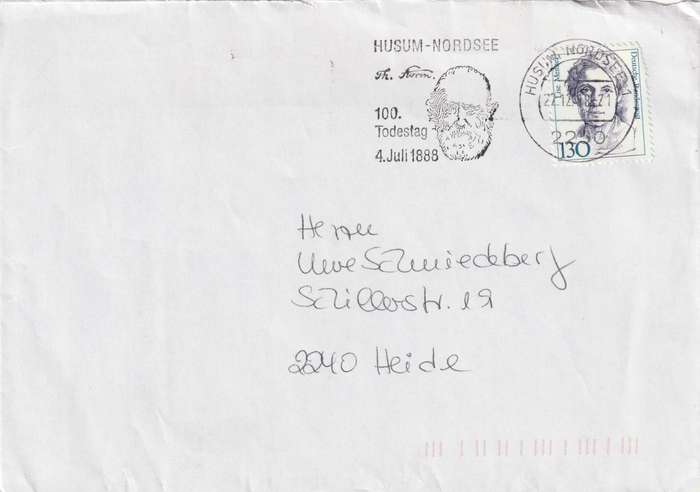 HUSUM-NORDSEE
Th. Storm.
100.
Todestag
4. Juli 1888
HUSUM, NORDSEE 1
2250
Lise Meitner
Deutsche Bundespost
130
Herrn
Uwe Schmiedeberg
Schillerstr. 19
2240 Heide